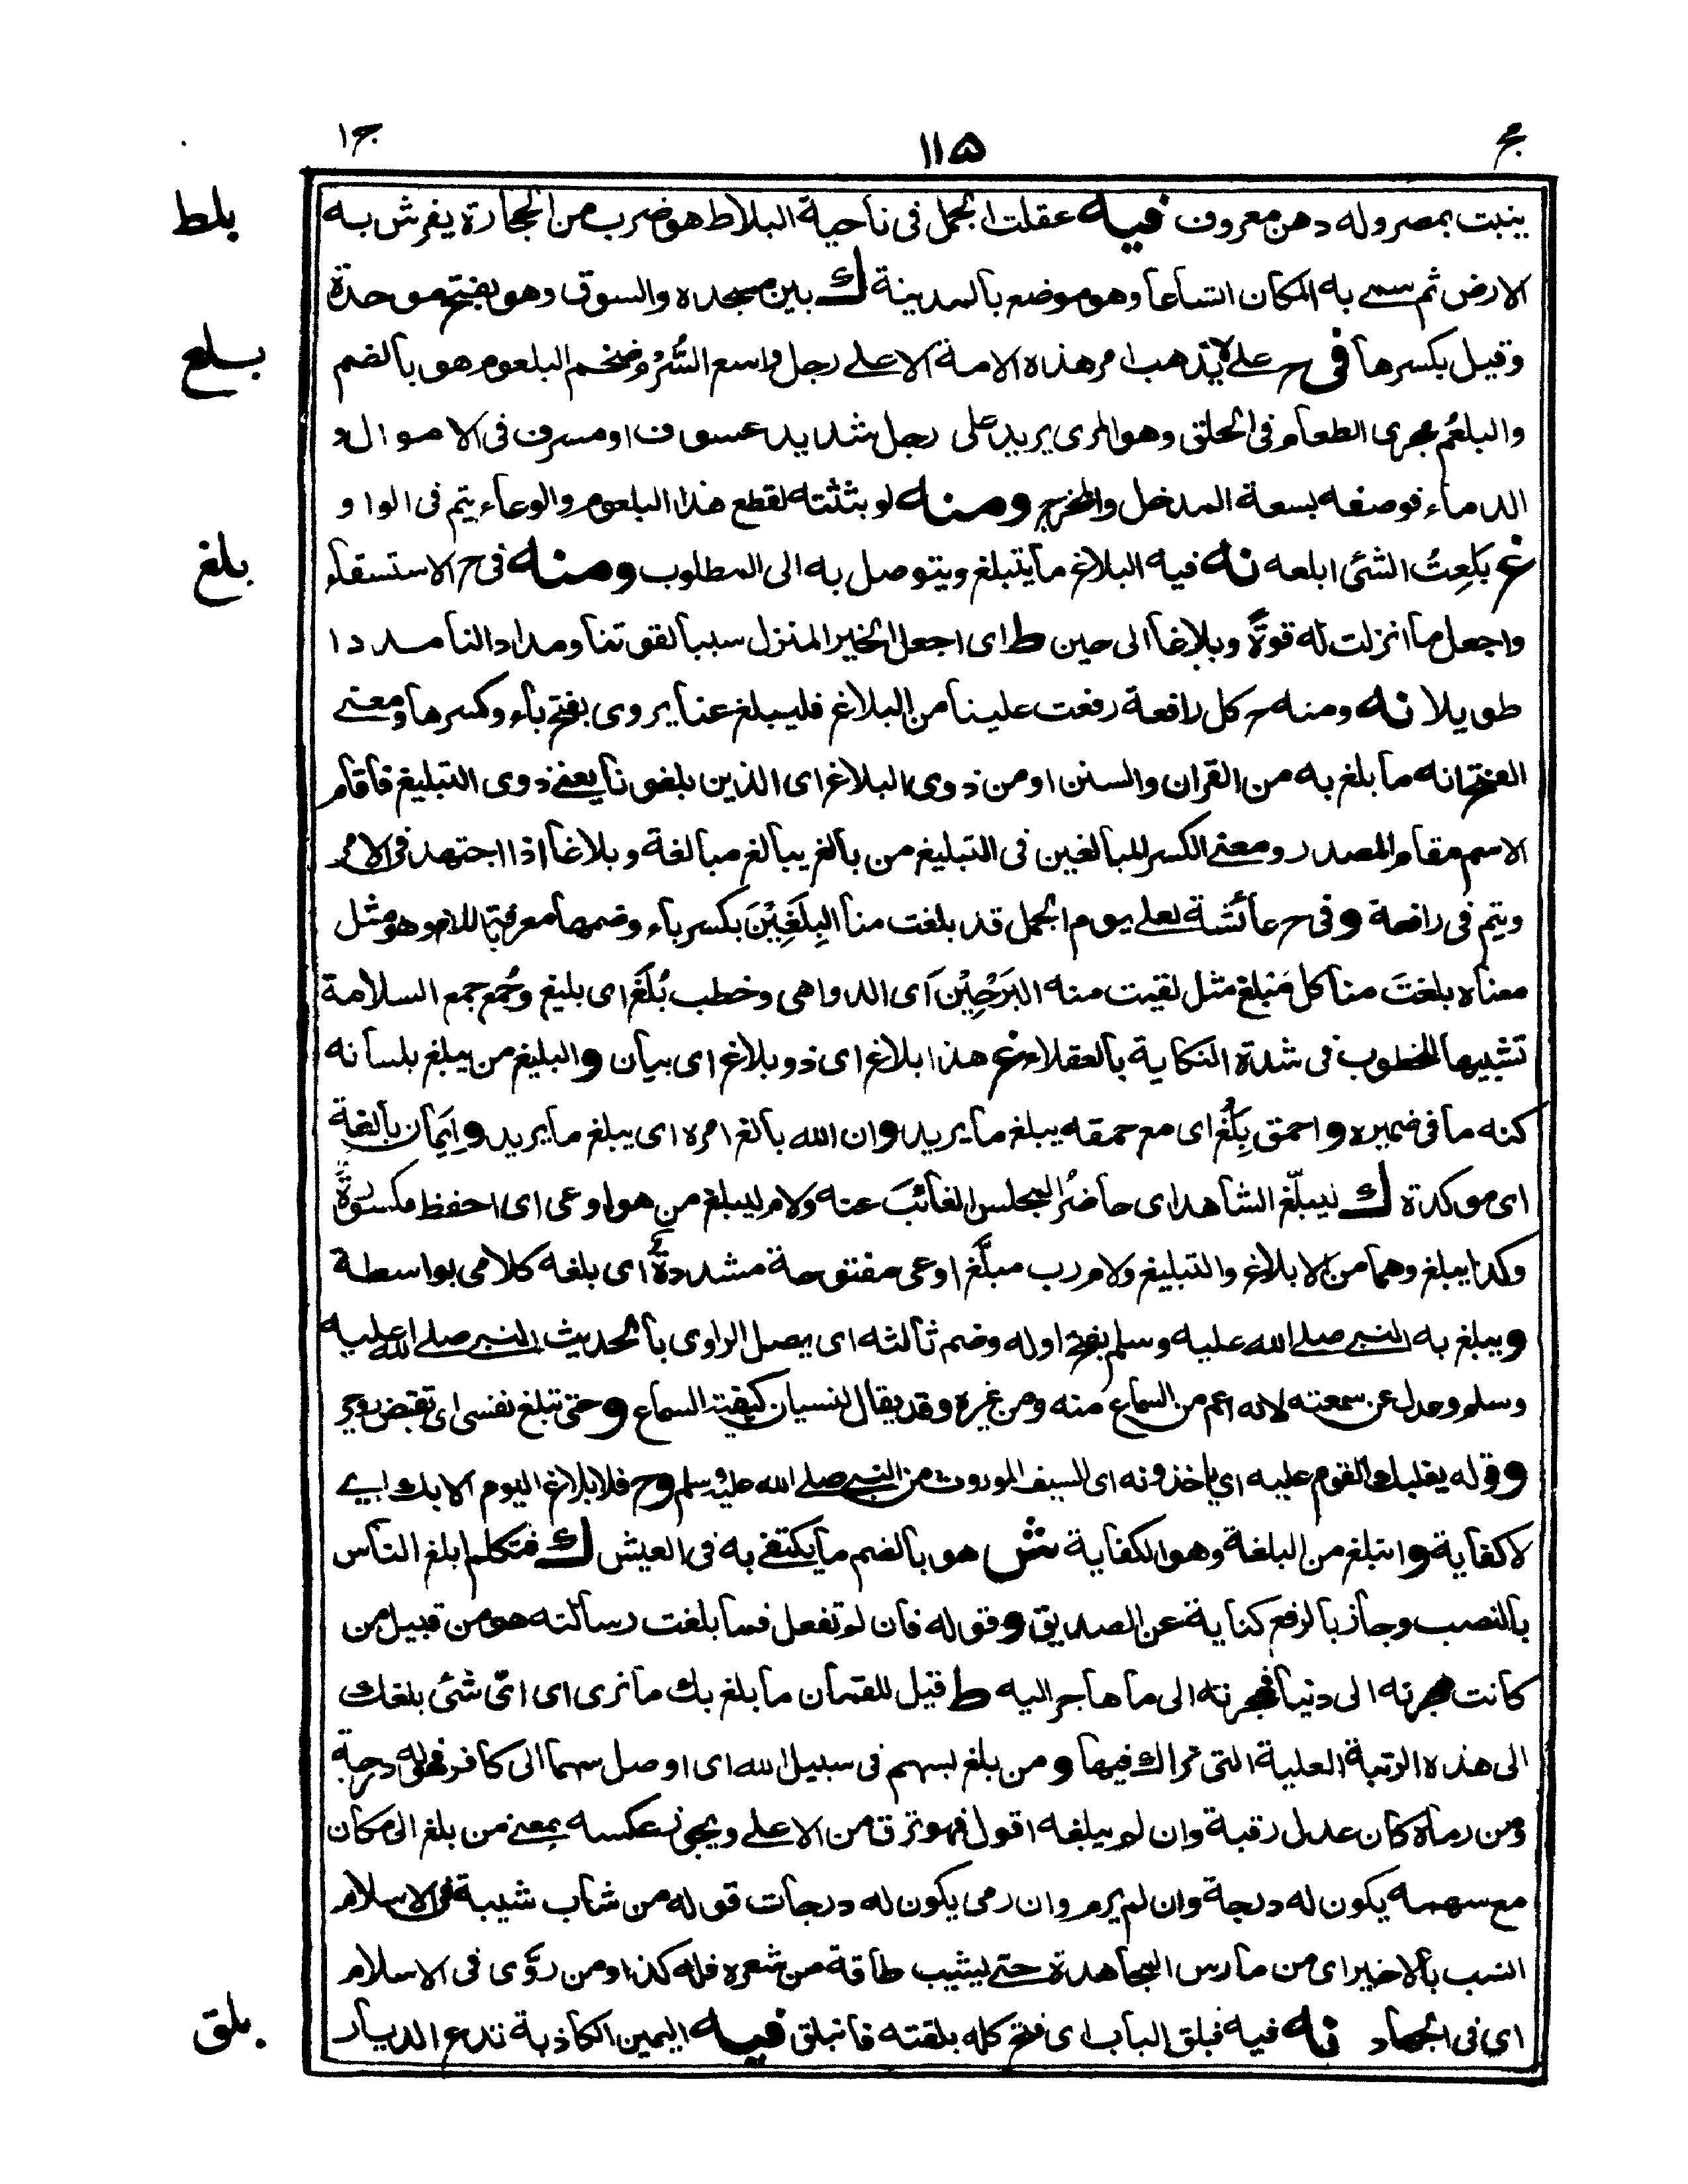 ج ١١٥ ج١
ينبت بمصر وله دهن معروف فيه عقلت الجمل فى ناحية البلاط هو ضرب من الحجارة يفرش به
بلط
الارض ثم سمى به المكان اتساعا وهو موضع بالمدينة ك بين مسجده والسوق وهو بفتح موحدة
وقيل بكسرها فى ح على لا يذهب امر هذه الامة الا على رجل واسع السُّرْم ضخم البلعوم هو بالضم
بلع
والبلعُم مجرى الطعام فى الحلق وهو المرى يريد على رجل شديد عسوف او مسرف فى الاموال و
الدماء فوصفه بسعة المدخل والمخرج ومنه لو بثثته لقطع هذا البلعوم والوعاء يتم فى الواو
غ بَلَعِتُ الشئ ابلعه نه فيه البلاغ ما يتبلغ ويتوصل به الى المطلوب ومنه فى ح الاستسقاء
بلغ
واجعل ما انزلت له قوةً وبلاغا الى حين ط اى اجعل الخير المنزل سببا لقوتنا ومدادالنا مددا
طويلا نه ومنه ح كل رافعة رفعت علينا من البلاغ فليبلغ عنا يروى بفتح باء وكسرها ومعنى
الفتح انه ما بلغ به من القران والسنن او من ذوى البلاغ اى الذين بلغونا يعنى ذوى التبليغ فاقام
الاسم مقام المصدر ومعنى الكسر للمبالغين فى التبليغ من بالغ يبالغ مبالغة وبلاغا اذا اجتهد فى الامر
ويتم فى رافعة وفى ح عائشة لعلى يوم الجمل قد بلغت منا البِلَغِيْنَ بكسر باء وضمها مع فتح اللام وهو مثل
معناه بلغت منا كل مَبْلغ مثل لقيت منه البَرَحِيْنَ اى الدواهى وخطب بُلَغ اى بليغ وجُمع جمع السلامة
تشبيها للخطوب فى شدة النكاية بالعقلاء غ هذا بلاغ اى ذو بلاغ اى بيان والبليغ من يبلغ بلسانه
كنه ما فى ضميره واحمق بِلْغُ اى مع حمقه يبلغ ما يريد وان الله بالغ امره اى يبلغ ما يريد وايمان بالغة
اى موكدة ك ليبلّغ الشاهد اى حاضرُ المجلس الغائبَ عنه ولام ليبلغ من هو اوعى اى احفظ مكسورة
وكذا يبلغ وهما من الابلاغ والتبليغ ولام رب مبلَّغ اوعى مفتوحة مشددة اى بلغه كلامى بواسطة
ويبلغ به النبى صلى الله عليه وسلم بفتح اوله وضم ثالثه اى يصل الراوى بالحديث النبى صلى الله عليه
وسلم وعدل عن سمعته لانه اعم من السماع منه ومن غيره وقد يقال لنسيان كيفية السماع وحتى تبلغ نفسى اى تقبض روحى
وقوله يغلبك القوم عليه اى ياخذونه اى السيف الموروث من النبى صلى الله عليه وسلم وح فلا بلاغ اليوم الا بك اى
لا كفاية واتبلغ من البلغة وهو الكفاية ش هو بالضم ما يكتفى به فى العيش ك فتكلم ابلغ الناس
بالنصب وجاز بالرفع كناية عن الصديق وقوله فان لم تفعل فما بلغت رسالته هو من قبيل من
كانت هجرته الى دنيا فهجرته الى ما هاجر اليه ط قيل للقمان ما بلغ بك ما نرى اى اىّ شئ بلغك
الى هذه الرتبة العلية التى نراك فيها ومن بلغ بسهم فى سبيل الله اى اوصل سهما الى كافر فهو له درجة
ومن رماه كان عدل رقبة وان لم يبلغه اقول فهو ترق من الاعلى ويجئ بعكسه بمعنى من بلغ الى مكان
مع سهمه يكون له درجة وان لم يرم وان رمى يكون له درجات قوله من شاب شيبة فى الاسلام
انسب بالاخير اى من مارس المجاهدة حتى يشيب طاقة من شعره فله كذا ومن روى فى الاسلام
اى فى الجهاد نه فيه فبلق الباب اى فتح كله بلقته فانبلق فيه اليمين الكاذبة تدع الديار
بلق